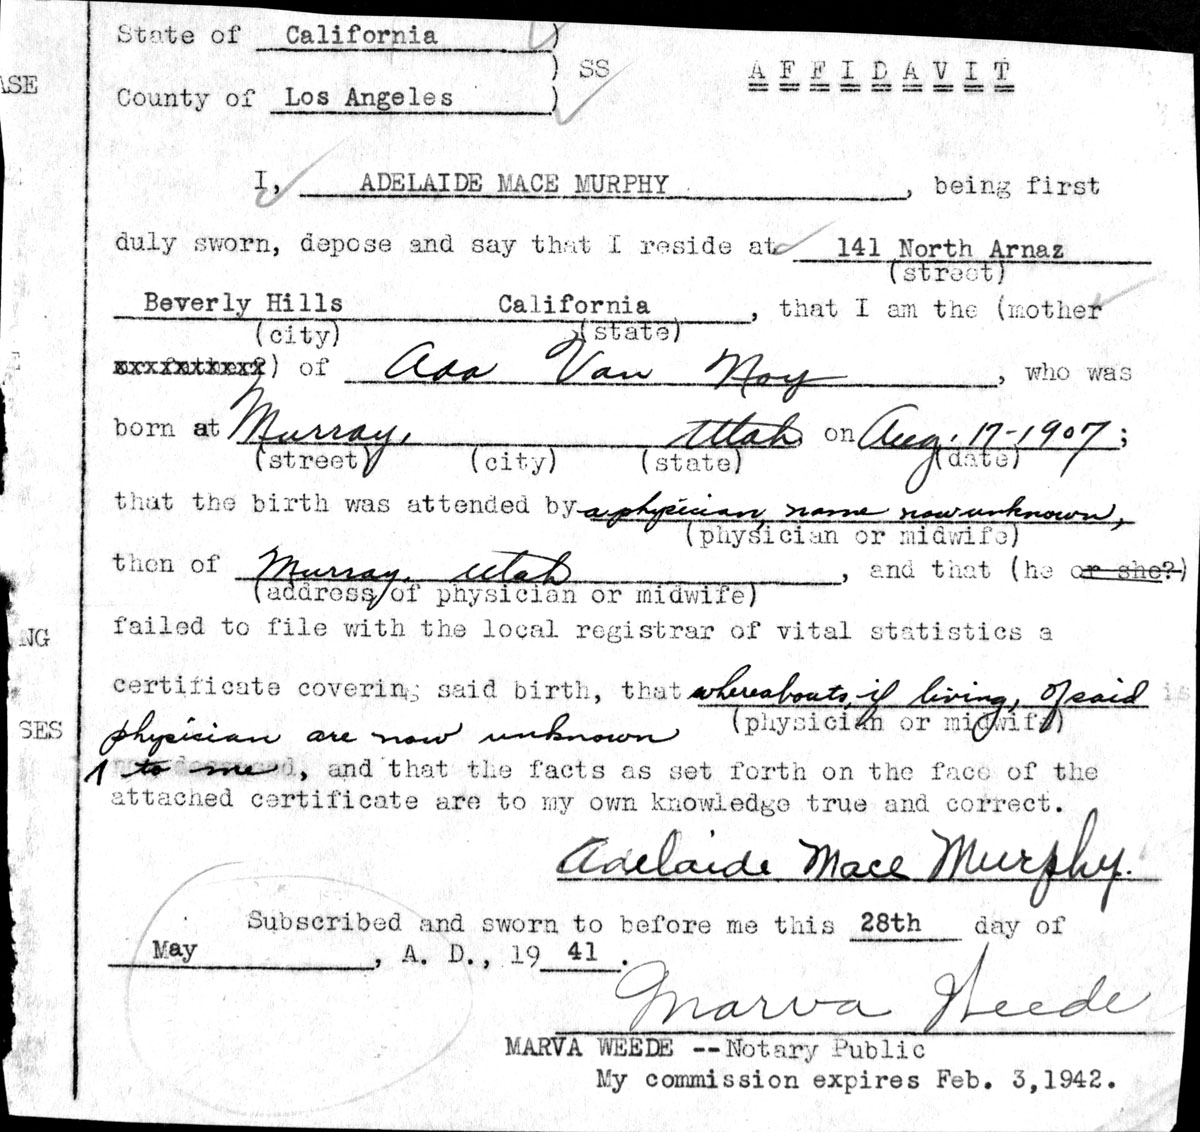 State of California )
ASE ) SS A F F I D A V I T
County of Los Angeles )
I, ADELAIDE MACE MURPHY, being first
duly sworn, depose and say that I reside at 141 North Arnaz
(street)
Beverly Hills California, that I am the (mother
(city) (state)
) of Ada Van Noy, who was
born at Murray, Utah on Aug. 17-1907;
(street) (city) (state) (date)
that the birth was attended by a physician, name now unknown,
(physician or midwife)
then of Murray, Utah, and that (he or she?)
(address of physician or midwife)
failed to file with the local registrar of vital statistics a
NG
certificate covering said birth, that whereabouts, if living, of said is
SES (physician or midwife)
physician are now unknown
to me, and that the facts as set forth on the face of the
attached certificate are to my own knowledge true and correct.
Adelaide Mace Murphy.
Subscribed and sworn to before me this 28th day of
May, A. D., 19 41.
Marva Weede
MARVA WEEDE -- Notary Public
My commission expires Feb. 3, 1942.